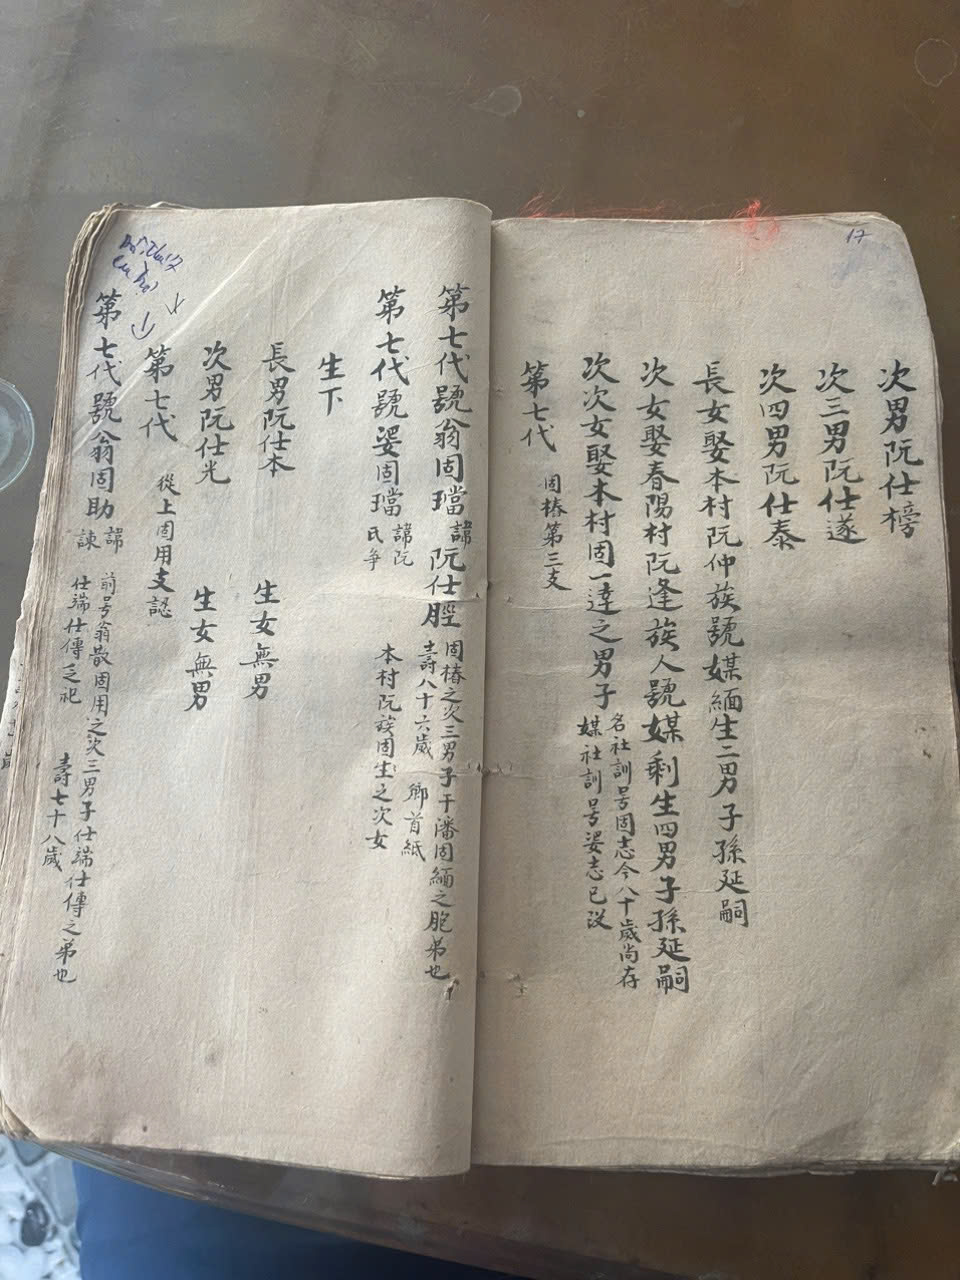 17
次男阮仕榜
次三男阮仕遂
次四男阮仕泰
長女娶本村阮仲族號媒緬生二男子孫延嗣
次女娶春陽村阮逢族人號媒剩生四男子孫延嗣
次次女娶本村固一達之男子 名社訓号固志今八十歲尚存
媒社訓号婆志已没
第七代 固椿第三支
第七代號翁固璫 諱阮仕脛 固椿之次三男子干潘固緬之胞弟也
壽八十六歲 鄉首紙
第七代號婆固璫 諱阮氏争 本村阮族固生之次女
生下
長男阮仕本 生女無男
次男阮仕光 生女無男
第七代 從上固用支認
第七代號翁固助 諱諫 前号翁散固用之次三男子仕端仕傳之弟也
仕端仕傳乏祀 壽七十八歲